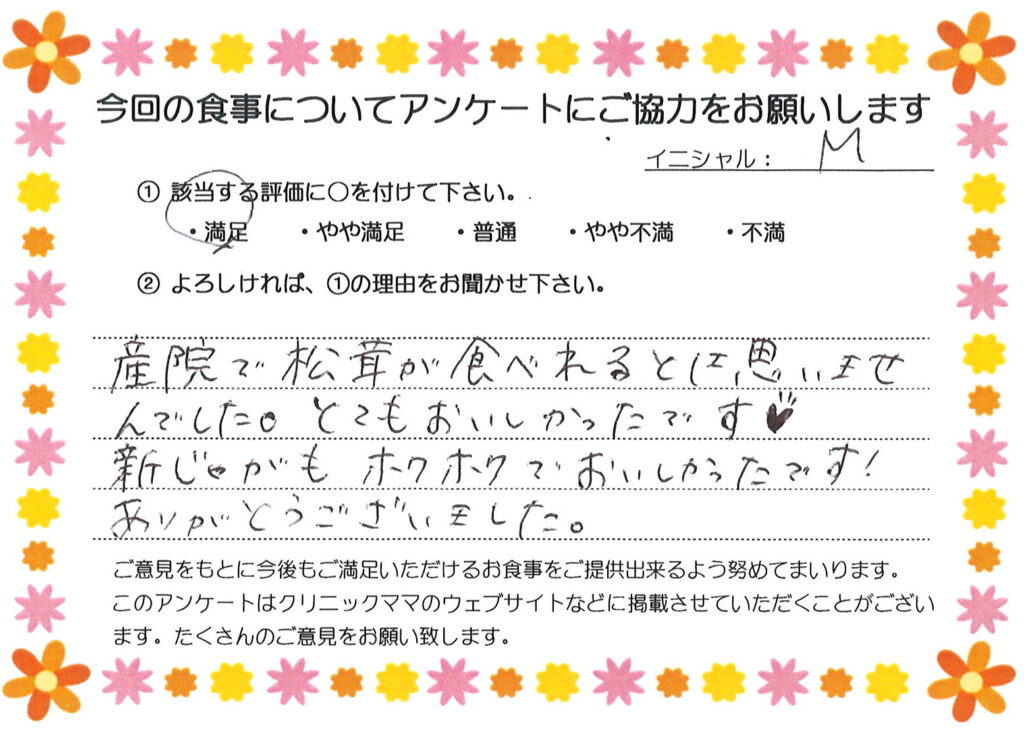 今回の食事についてアンケートにご協力をお願いします
イニシャル： M
① 該当する評価に○を付けて下さい。
・満足 ・やや満足 ・普通 ・やや不満 ・不満
② よろしければ、①の理由をお聞かせ下さい。
産院で松茸が食べれるとは思いませ
んでした。とてもおいしかったです♥
新じゃがもホクホクでおいしかったです！
ありがとうございました。
ご意見をもとに今後もご満足いただけるお食事をご提供出来るよう努めてまいります。
このアンケートはクリニックママのウェブサイトなどに掲載させていただくことがござい
ます。たくさんのご意見をお願い致します。